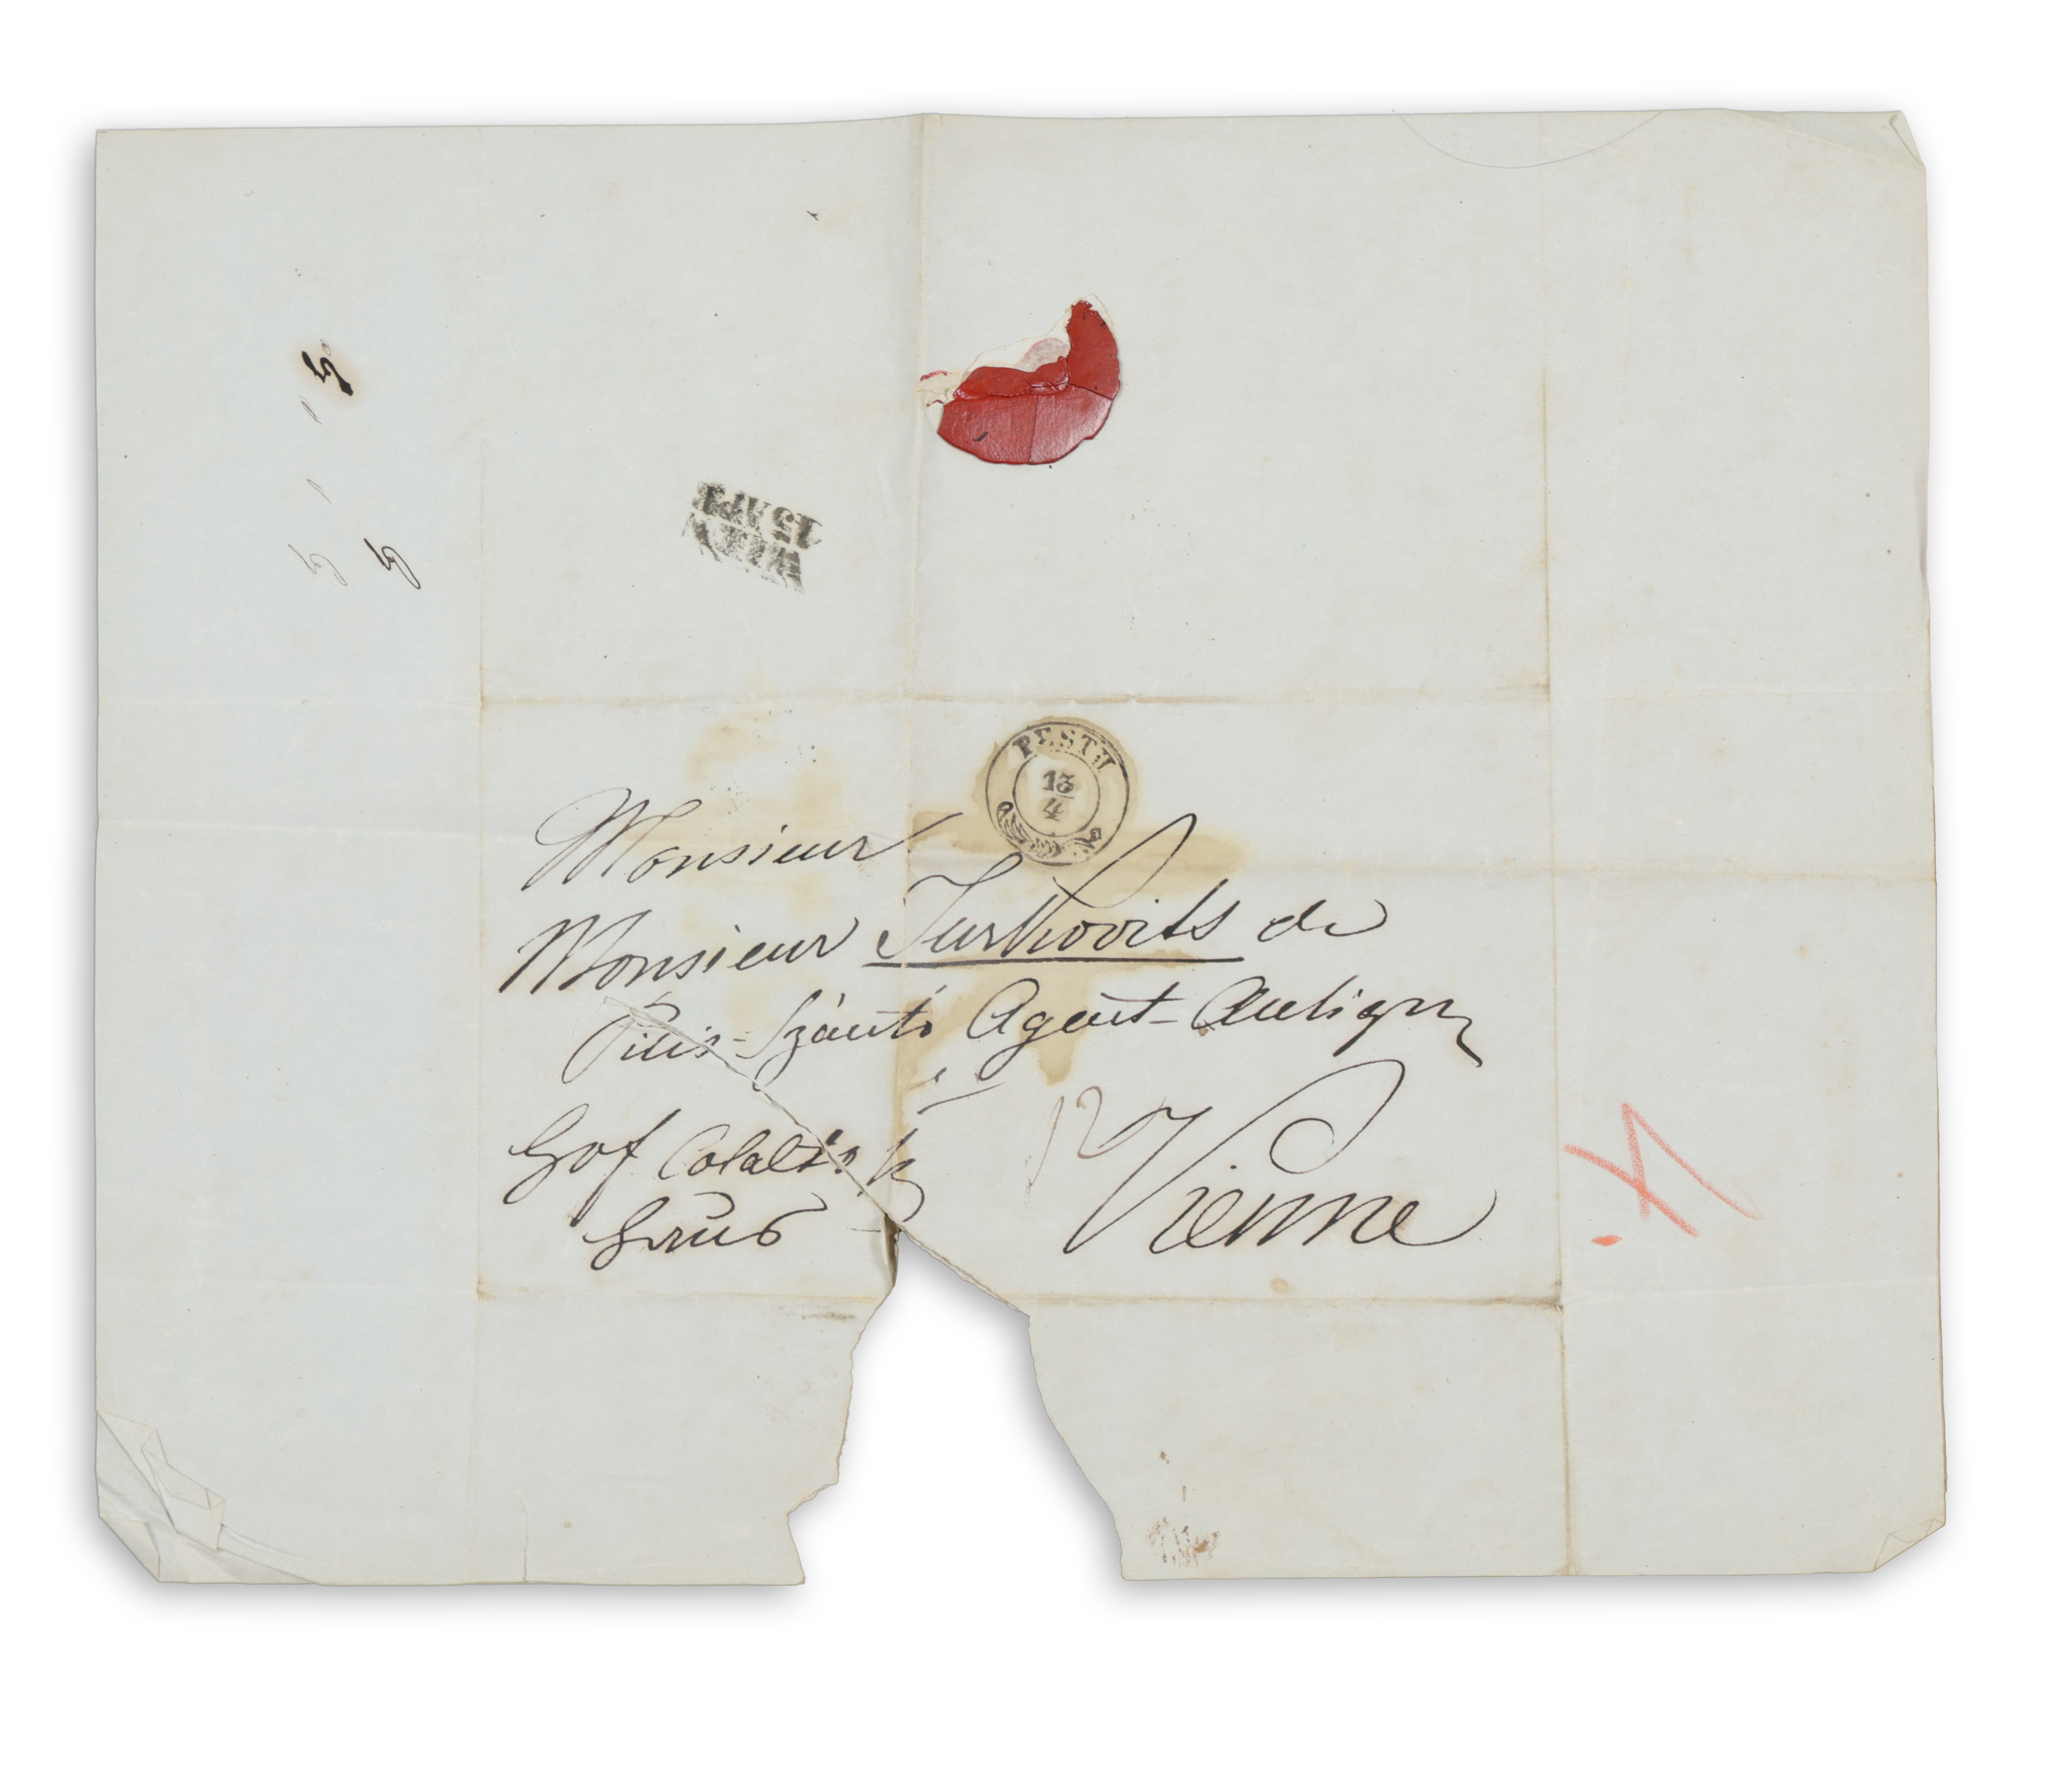 WIEN
15 APR
PESTH
13
4
Monsieur
Monsieur Jurkovits de
Pilis-Szántó Agent-Aulique
à
12
Hof
Haus
Vienne